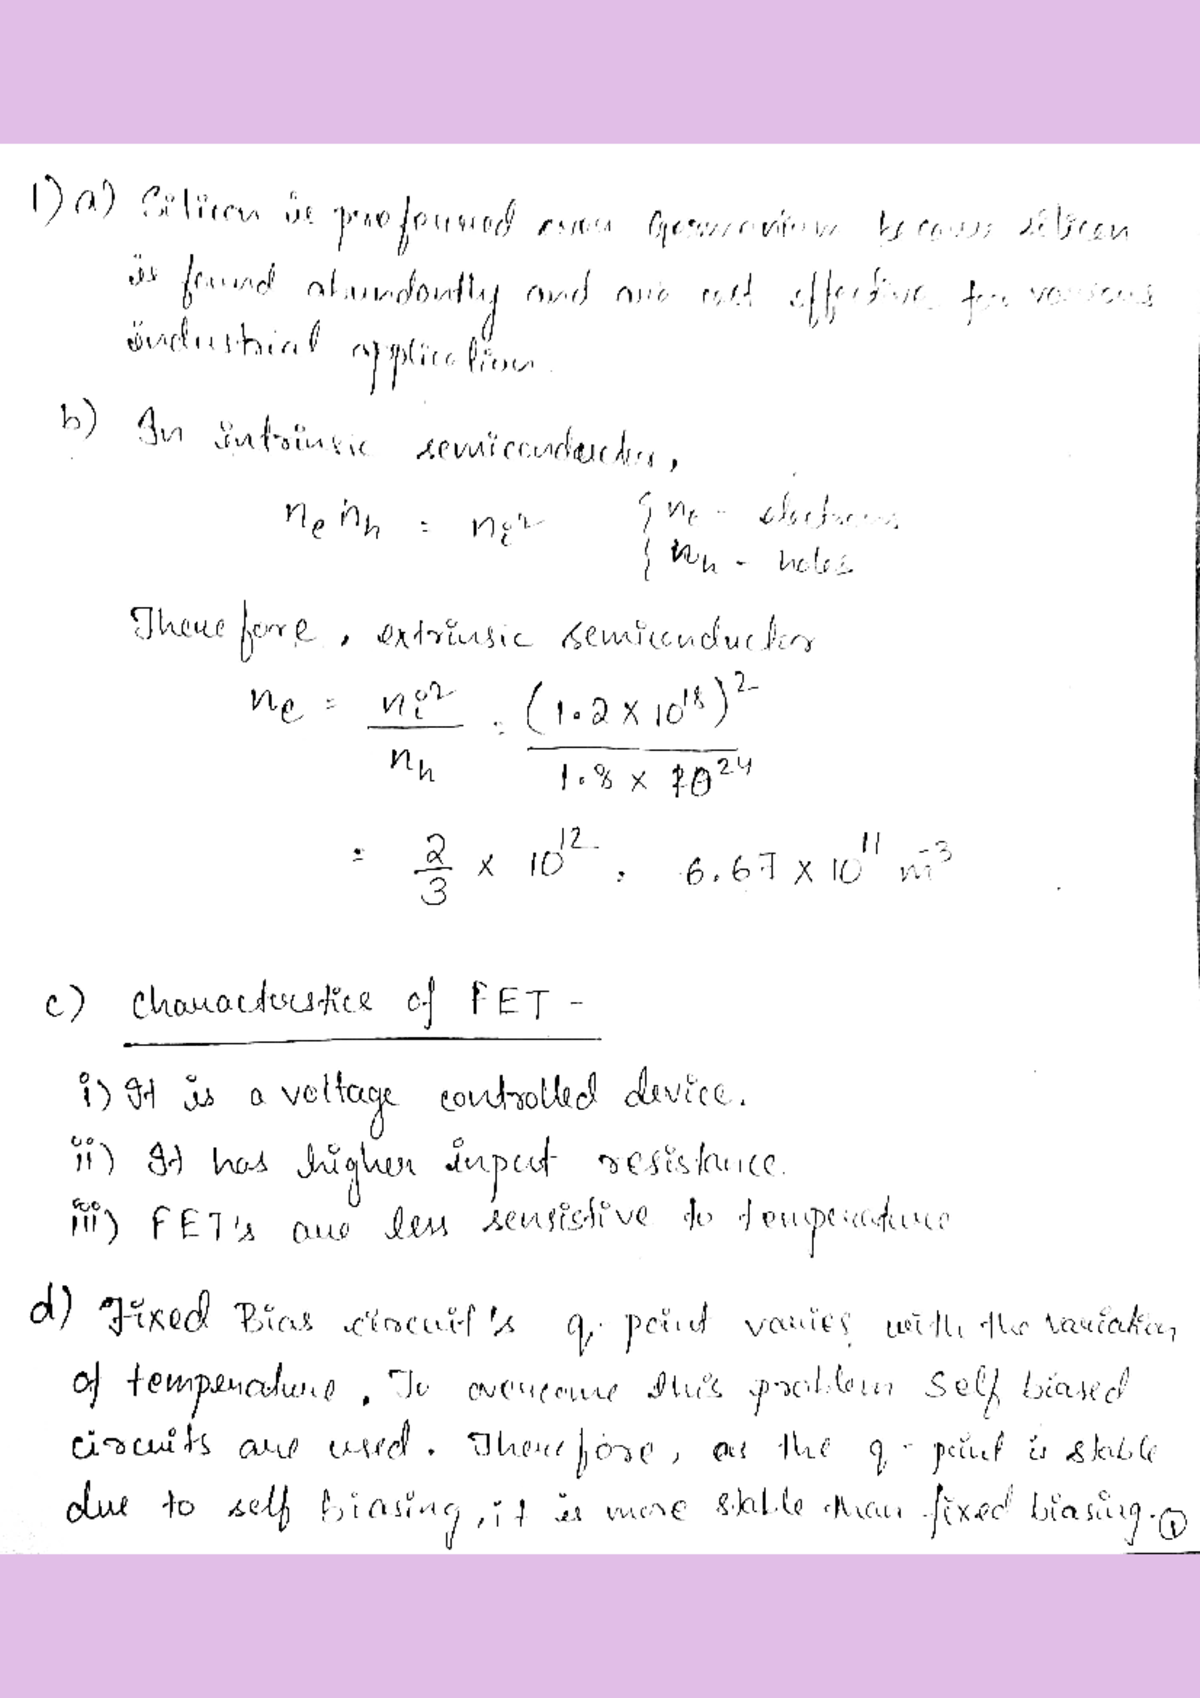 1) a) Silicon is preferred over Germanium because silicon
is found abundantly and are cost effective for various
industrial application.
b) In intrinsic semiconductor,
ne nh = ni²  { ne - electrons
{ nh - holes
Therefore, extrinsic semiconductor
ne = ni² / nh = (1.2 × 10¹⁸)² / 1.8 × 10²⁴
= 2/3 × 10¹² , 6.67 × 10¹¹ m⁻³
c) Characteristice of FET -
i) It is a voltage controlled device.
ii) It has higher input resistance.
iii) FET's are less sensistive to temperature
d) Fixed Bias circuit's q-point varies with the variation
of temperature. To overcome this problem Self biased
circuits are used. Therefore, as the q-point is stable
due to self biasing, it is more stable than fixed biasing. ①